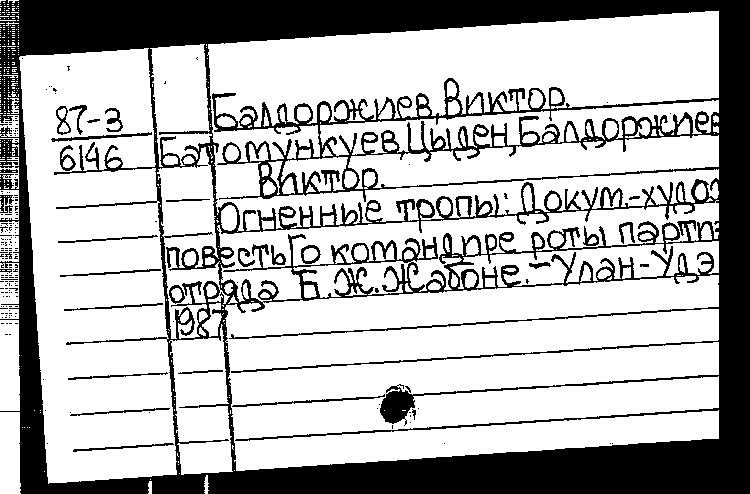 Балдоржиев, Виктор.
87-3
6146 Батомункуев, Цыден, Балдоржиев
Виктор.
Огненные тропы: Докум.-худо
повесть [о командире роты парти
отряда Б.Ж.Жабоне.-Улан-Удэ
1987.